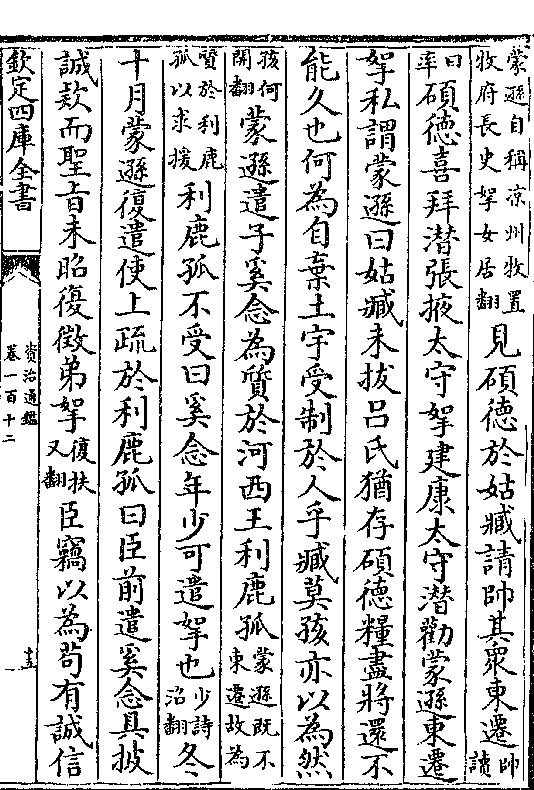 蒙遜自稱涼州牧置牧府長史挐女居翻見碩德於姑臧請帥其衆東遷帥讀
曰率碩德喜拜潛張掖太守挐建康太守潛勸蒙遜東遷
挐私謂蒙遜曰姑臧未拔呂氏猶存碩德糧盡將還不
能久也何為自棄土宇受制於人乎臧莫孩亦以為然
孩何開翻蒙遜遣子奚念為質於河西王利鹿孤蒙遜既不東遷故為
質於利鹿孤以求援利鹿孤不受曰奚念年少可遣挐也少詩沼翻冬
十月蒙遜復遣使上疏於利鹿孤曰臣前遣奚念具披
誠款而聖旨未昭復徵弟挐復扶又翻臣竊以為苟有誠信
欽定四庫全書
資治通鑑
卷一百十二
十五